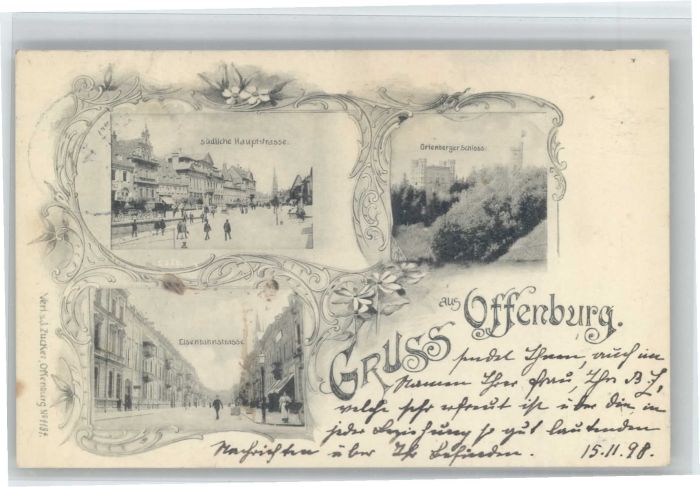 südliche Hauptstrasse.
Ortenberger Schloss.
Eisenbahnstrasse
GRUSS aus Offenburg.
sendet Ihnen, auch im
Namen Ihrer Frau, Ihr B.
welche sehr erfreut ist über die, in
jeder Beziehung so gut lautenden
Nachrichten über Ihr Befinden. 15.11.98.
Verl. v. J. Zucker, Offenburg No